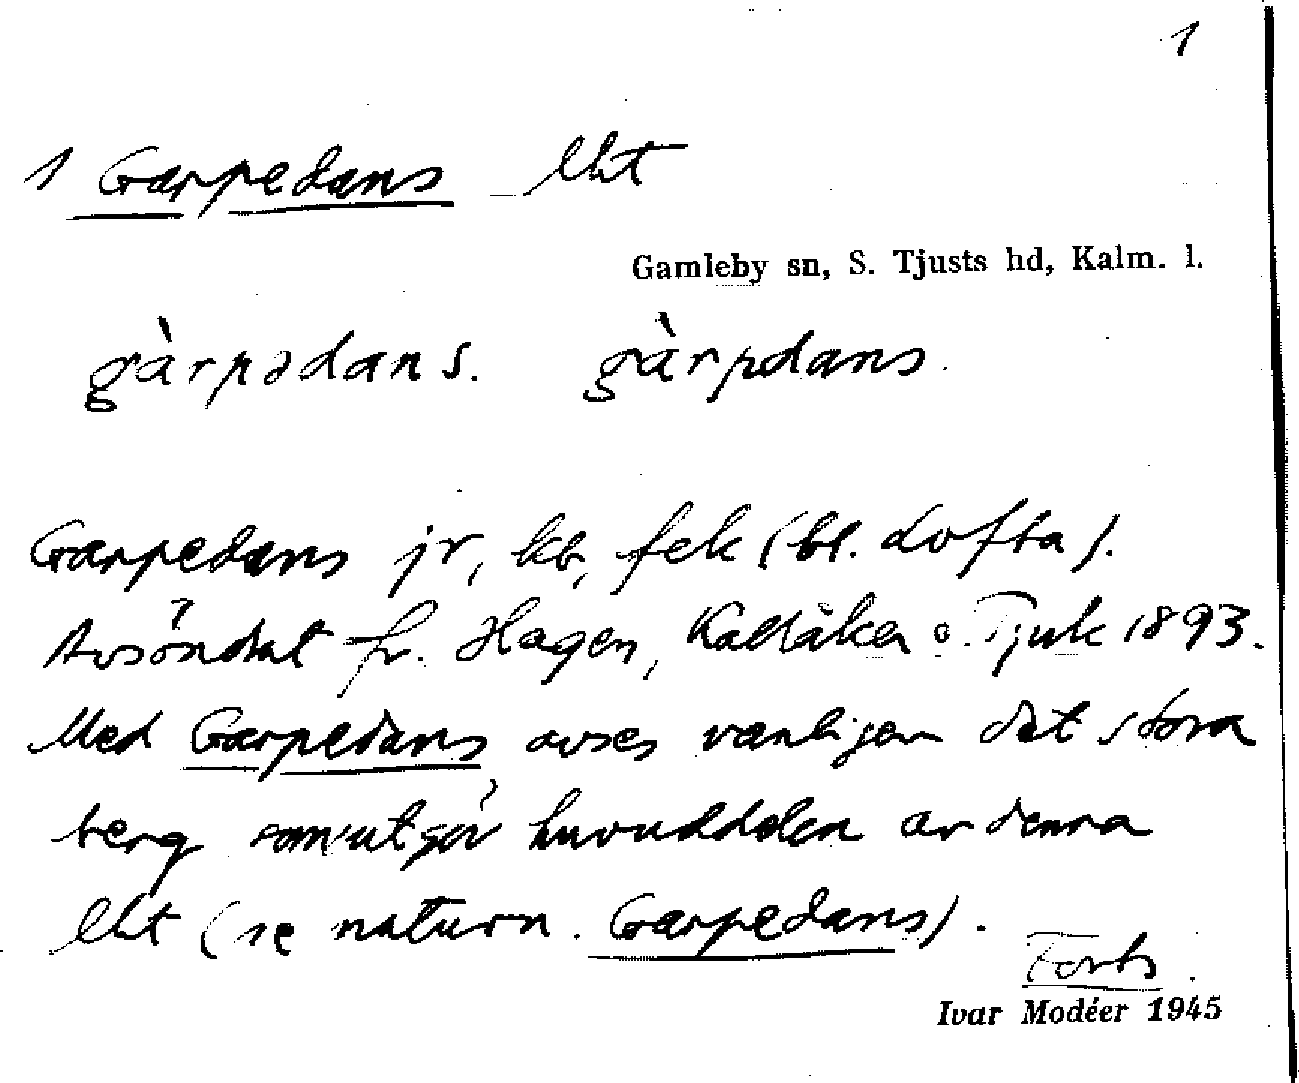 1
1 Garpedans lht
Gamleby sn, S. Tjusts hd, Kalm. l.
gàrpədans. gàrpdans.
Garpedans jr, kb, fek (bl. Lofta).
Avsöndrat fr. Hagen, Kallsåker o. Tjuk 1893.
Med Garpedans avses vanligen det stora
berg som utgör huvuddelen av denna
lht (se naturn. Garpedans).
Forts.
Ivar Modéer 1945